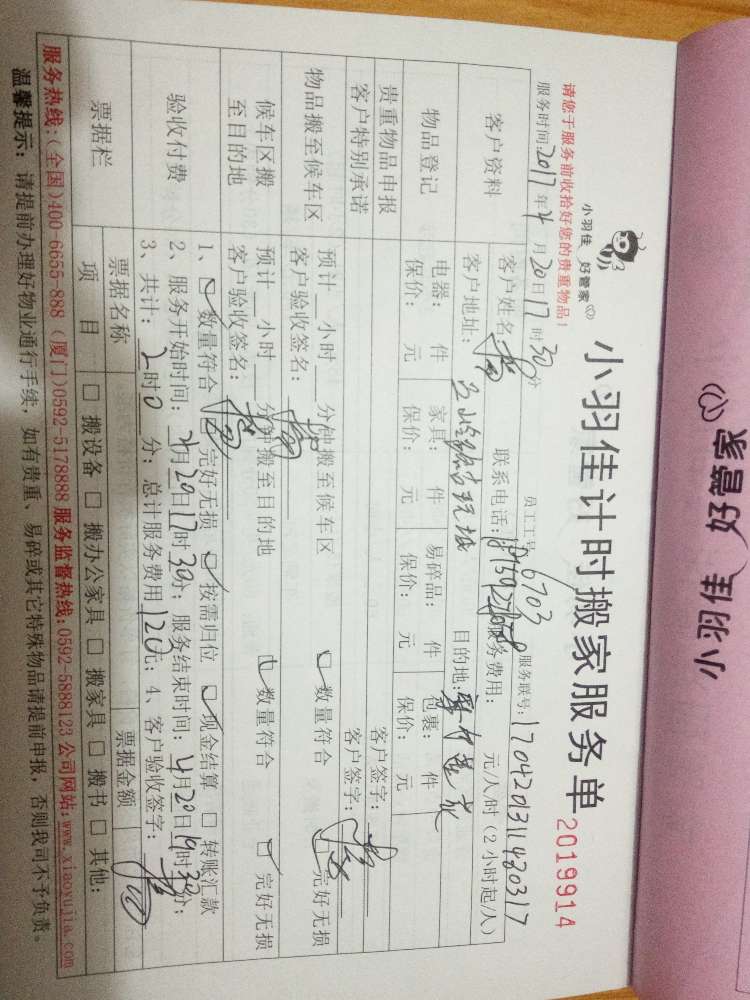 小羽佳 好管家
小羽佳 好管家
小羽佳计时搬家服务单 2019914
请您于服务前收拾好您的贵重物品!
员工工号: 6703 服务联号: 1704201311420317
服务时间:2017年4月20日17时30分
客户资料
客户姓名: 联系电话: 服务费用: 元/人/时(2小时起/人)
客户地址: 目的地:
物品登记
电器: 件 家具: 件 易碎品: 件 包裹: 件
保价: 元 保价: 元 保价: 元 保价: 元
贵重物品申报 客户签字:
客户特别承诺 客户签字:
物品搬至候车区
预计__小时__分钟搬至候车区
客户验收签名: 数量符合 完好无损
候车区搬至目的地
预计__小时__分钟搬至目的地
客户验收签名: 数量符合 完好无损
验收付费
1、☑ 数量符合 ☑ 完好无损 ☑ 按需归位 ☑ 现金结算 □ 转账汇款
2、服务开始时间: 4月20日17时30分; 服务结束时间: 4月20日19时30分;
3、共计: 2时0分; 总计服务费用120元; 4、客户验收签字:
票据栏
票据名称 票据金额
项目 □ 搬设备 □ 搬办公家具 □ 搬家具 □ 搬书 □ 其他:
服务热线:(全国)400-6655-888 (厦门)0592-5178888 服务监督热线:0592-5888123 公司网站:www.xiaoyujia.com
温馨提示: 请提前办理好物业通行手续, 如有贵重、易碎或其它特殊物品请提前申报, 否则我司不予负责。